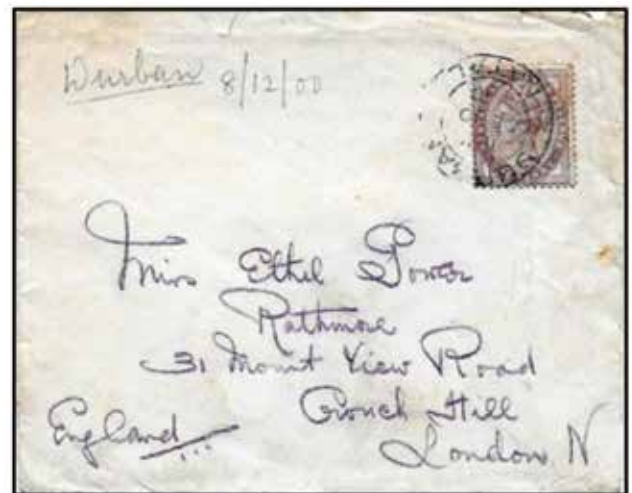 Durban 8/12/00
Miss Ethel Power
Rathmore
31 Mount View Road
Crouch Hill
London N
England